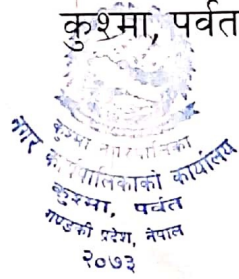 कुश्मा, पर्वत
कुश्मा नगरपालिका
नगर कार्यपालिकाको कार्यालय
कुश्मा, पर्वत
गण्डकी प्रदेश, नेपाल
२०७३